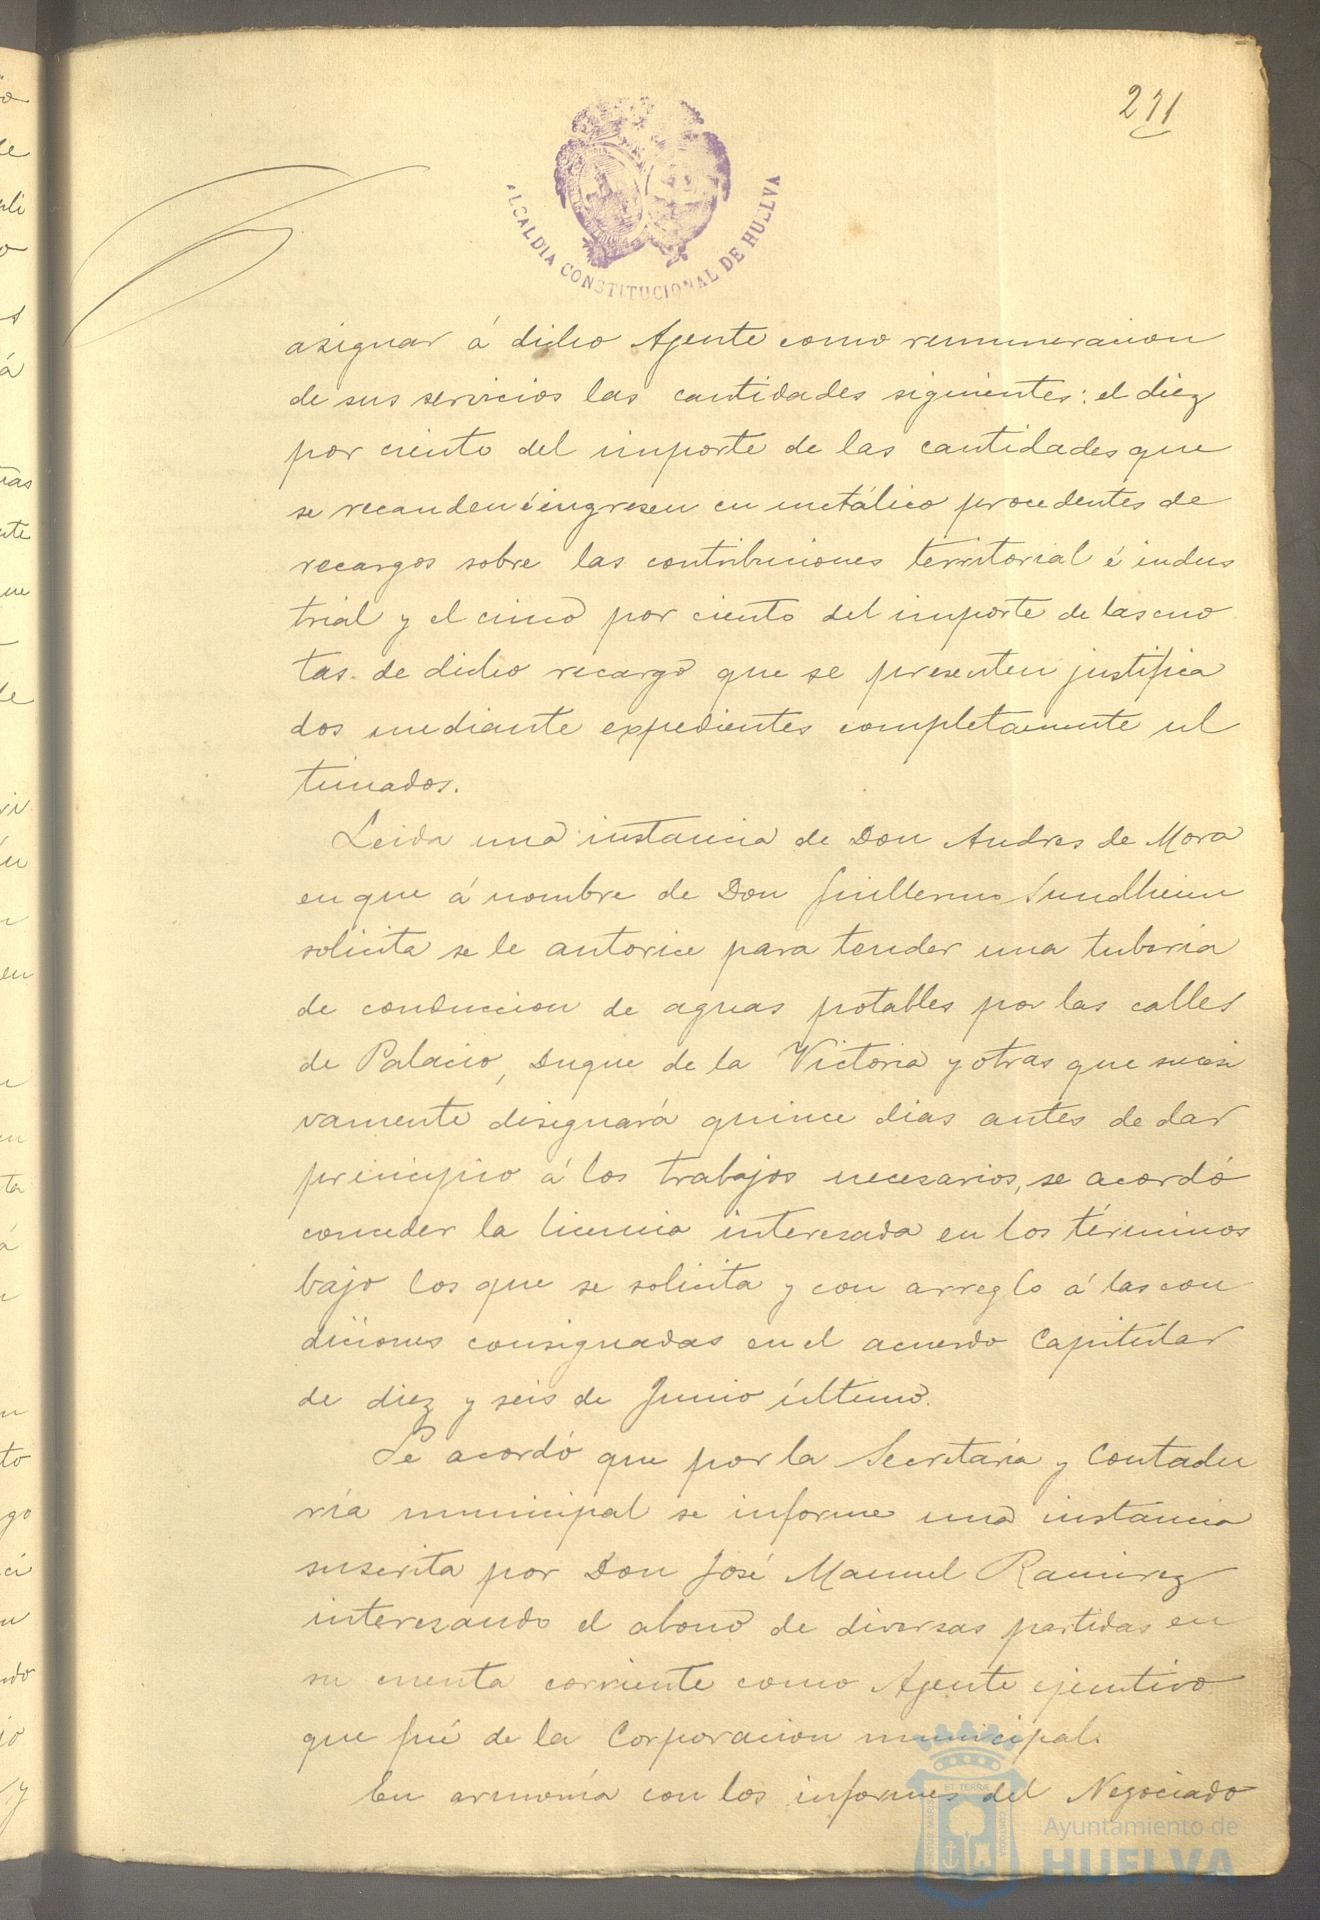 271
ALCALDIA CONSTITUCIONAL DE HUELVA
asignar á dicho Agente como remuneracion
de sus servicios las cantidades siguientes: el diez
por ciento del importe de las cantidades que
se recauden é ingresen en metálico procedentes de
recargos sobre las contribuciones territorial é indus
trial y el cinco por ciento del importe de las cuo
tas de dicho recargo que se presenten justifica
dos mediante expedientes completamente ul
timados.
Leida una instancia de Don Andres de Mora
en que á nombre de Don Guillermo Sundheim
solicita se le autorice para tender una tuberia
de conduccion de aguas potables por las calles
de Palacio, Duque de la Victoria y otras que sucesi
vamente designará quince dias antes de dar
principio á los trabajos necesarios, se acordó
conceder la licencia interesada en los términos
bajo los que se solicita y con arreglo á las con
diciones consignadas en el acuerdo Capitular
de diez y seis de Junio último.
Se acordó que por la Secretaria y Contadu
ría municipal se informe una instancia
suscrita por Don José Manuel Ramirez
interesando el abono de diversas partidas en
su cuenta corriente como Agente ejecutivo
que fué de la Corporacion municipal.
En armonía con los informes del Negociado
Ayuntamiento de
HUELVA